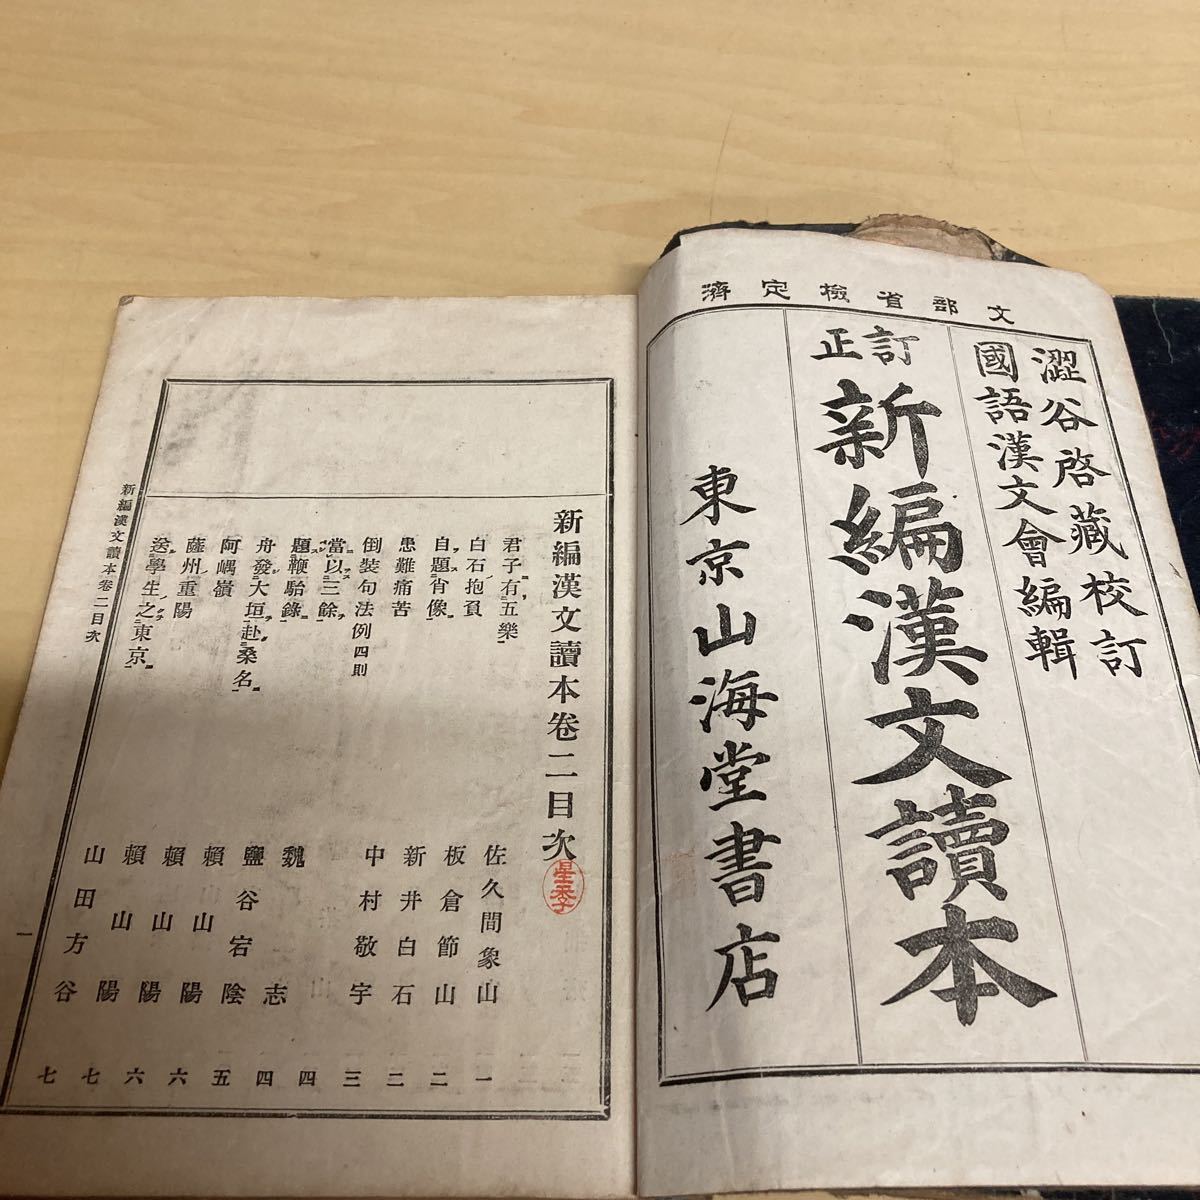 文部省檢定濟
澀谷啓藏校訂
國語漢文會編輯
訂正
新編漢文讀本
東京山海堂書店
新編漢文讀本卷二目次
君子有五樂 佐久間象山 一
白石抱負 板倉節山 二
自題肖像 新井白石 二
患難痛苦 中村敬宇 三
倒裝句法例四則 四
當以三餘 魏志 四
題鞭駘錄 鹽谷宕陰 五
舟發大垣赴桑名 賴山陽 六
阿嵎嶺 賴山陽 六
薩州重陽 賴山陽 七
送學生之東京 山田方谷 七
新編漢文讀本卷二目次
一